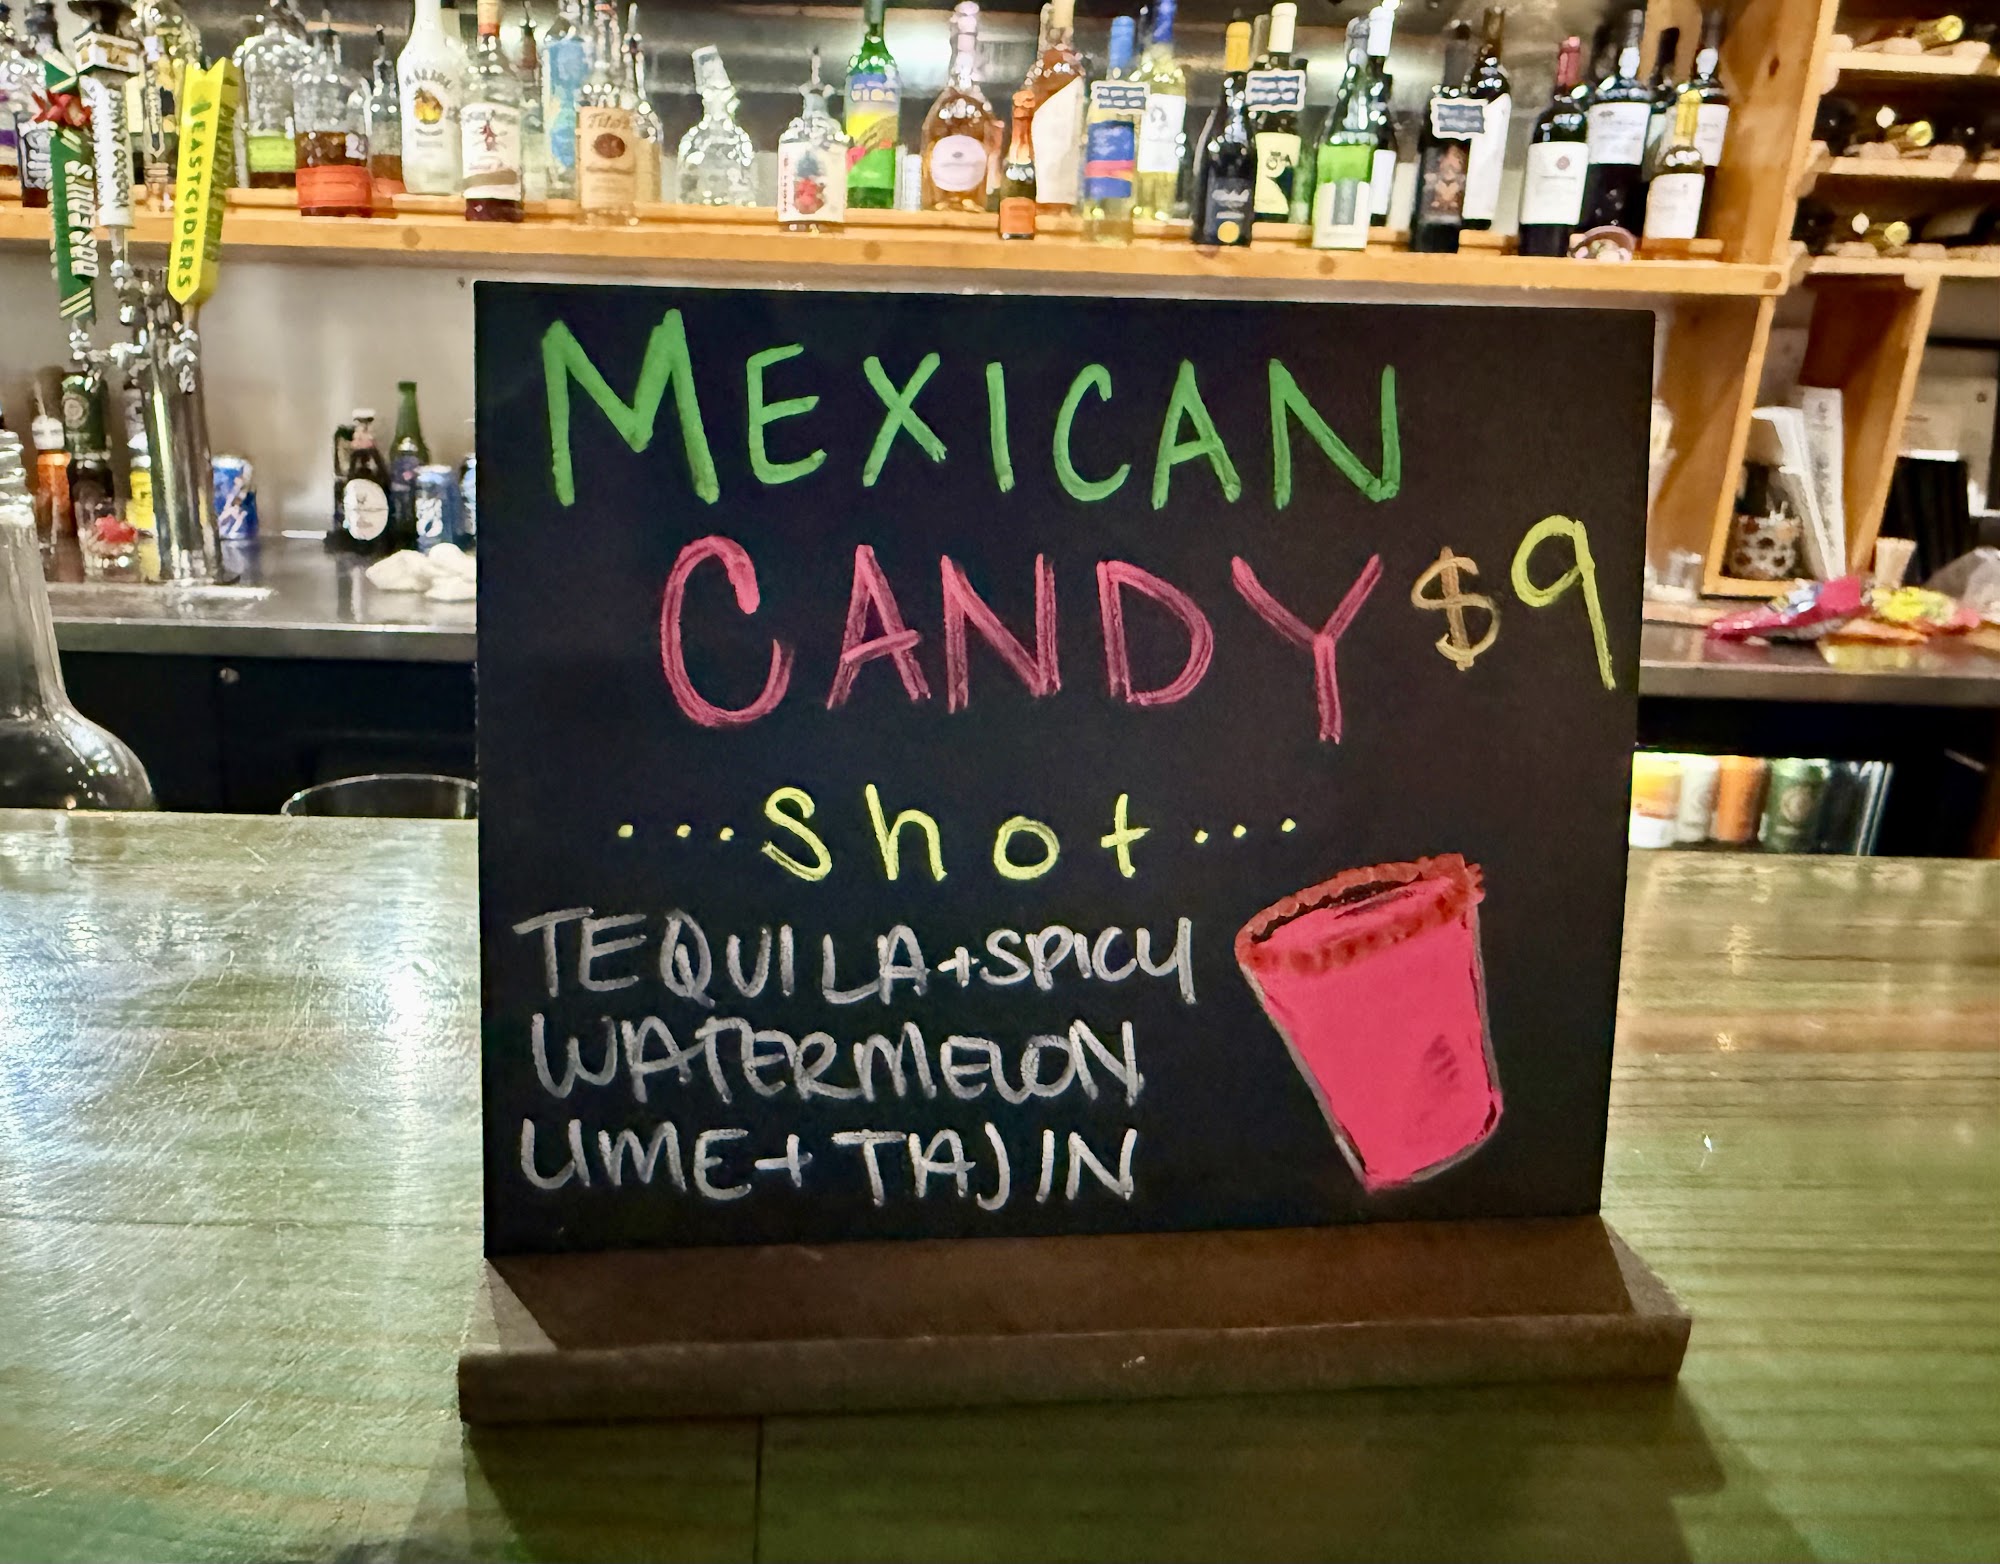 MEXICAN
CANDY $9
...shot...
TEQUILA+SPICY
WATERMELON
LIME+TAJIN
DOS EQUIS
AEASTCIDERS
Tito's